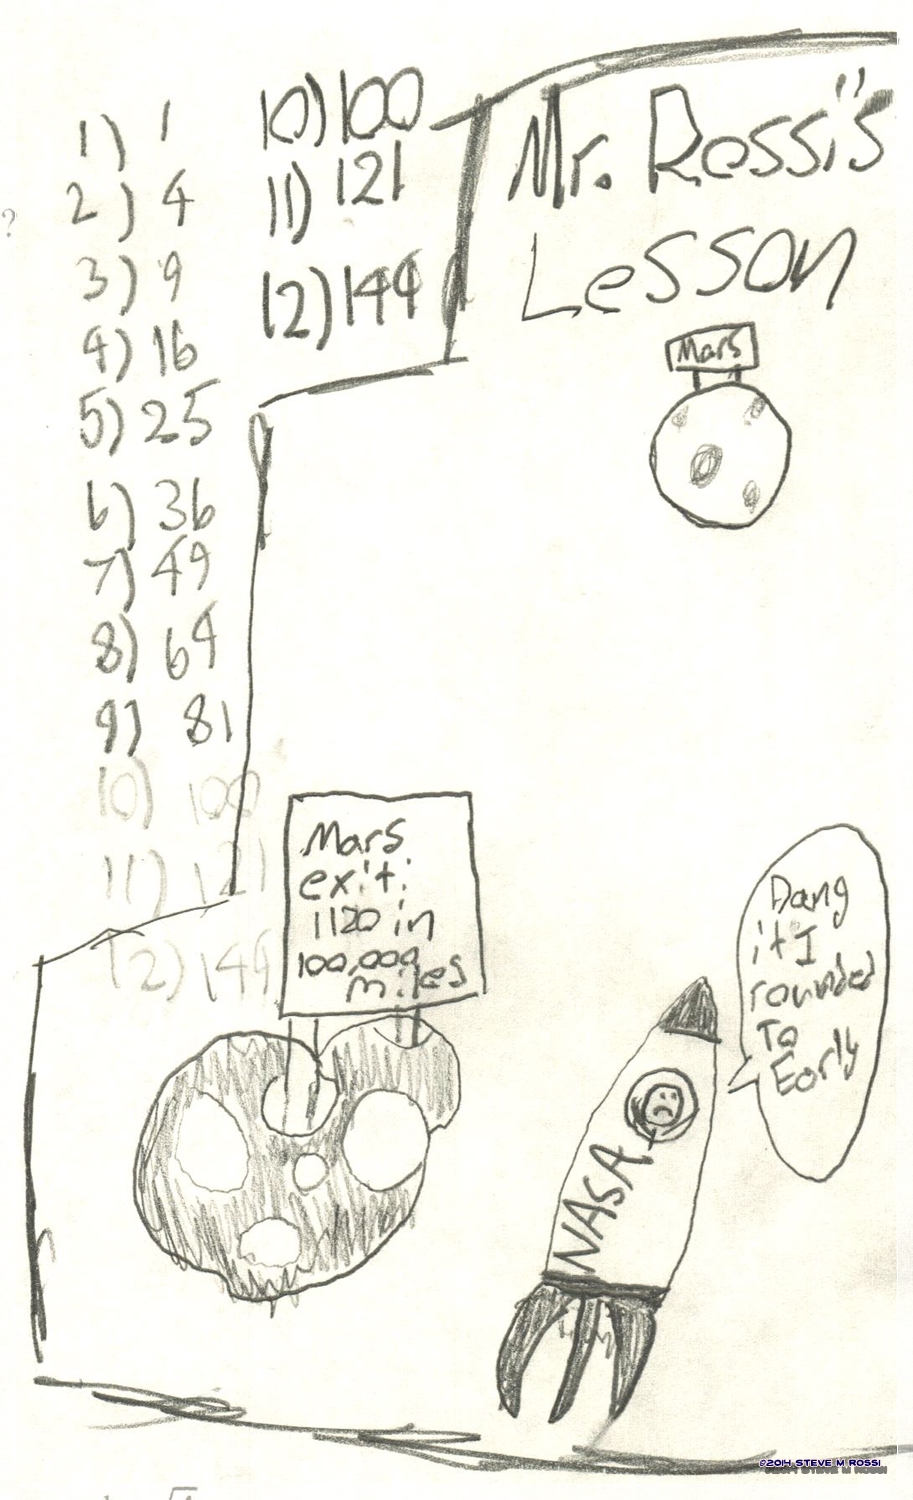 1) 1
2) 4
3) 9
4) 16
5) 25
6) 36
7) 49
8) 64
9) 81
10) 100
11) 121
12) 144
10) 100
11) 121
12) 144
?
Mr. Rossi's
Lesson
Mars
Mars
exit:
1120 in
100,000
miles
Dang
it I
rounded
To
Early
NASA
©2014 STEVE M ROSSI